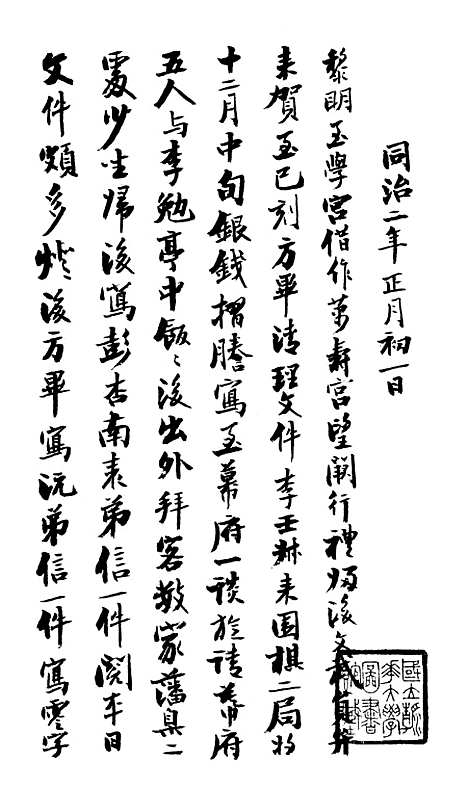 同治二年正月初一日
黎明至學宮借作萬壽宮望闕行禮歸後文武員弁
來賀至巳刻方畢清理文件李壬叔來圍棋二局將
十二月中旬銀錢摺謄寫至幕府一談旋請幕府
五人與李勉亭中飯〻後出外拜客數家藩臬二
處少坐歸後寫彭杏南表弟信一件閱本日
文件頗多燈後方畢寫沅弟信一件寫零字
國立
大學
圖書